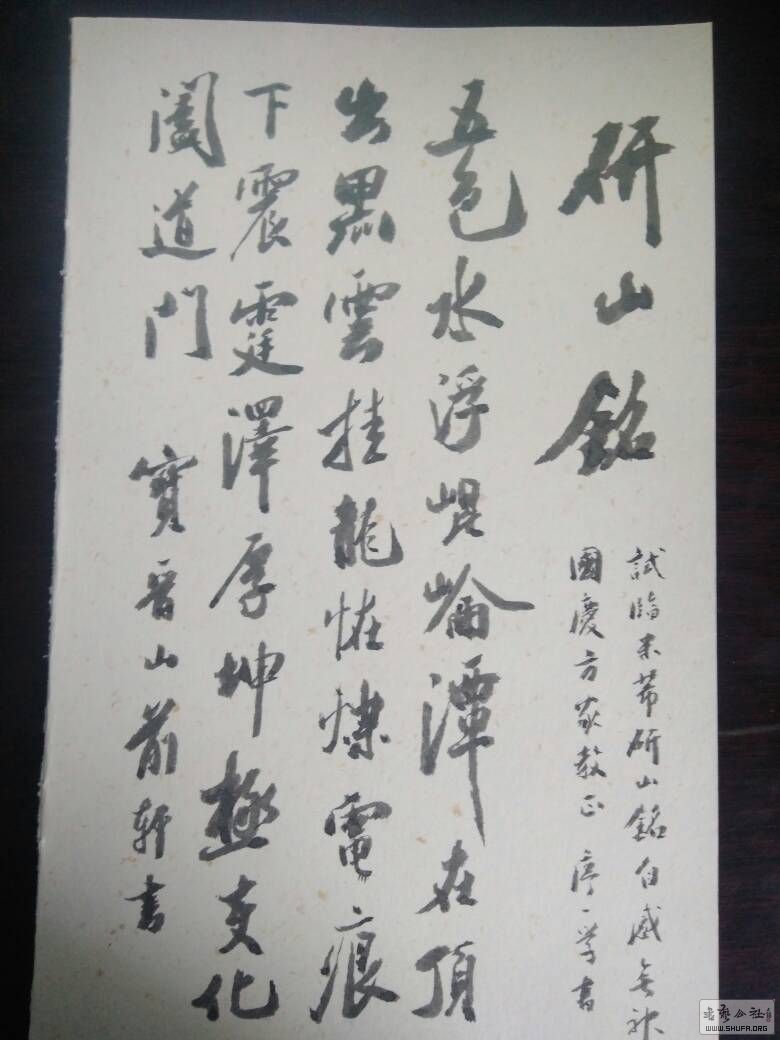 研山銘
試臨米芾研山銘自感無神
國慶方家教正 学書
五色水浮崐崘潭在頂
出黑雲挂龍恠爍電痕
下震霆澤厚坤極变化
闔道門 寶晉山前軒書
書藝公社
WWW.SHUFA.ORG